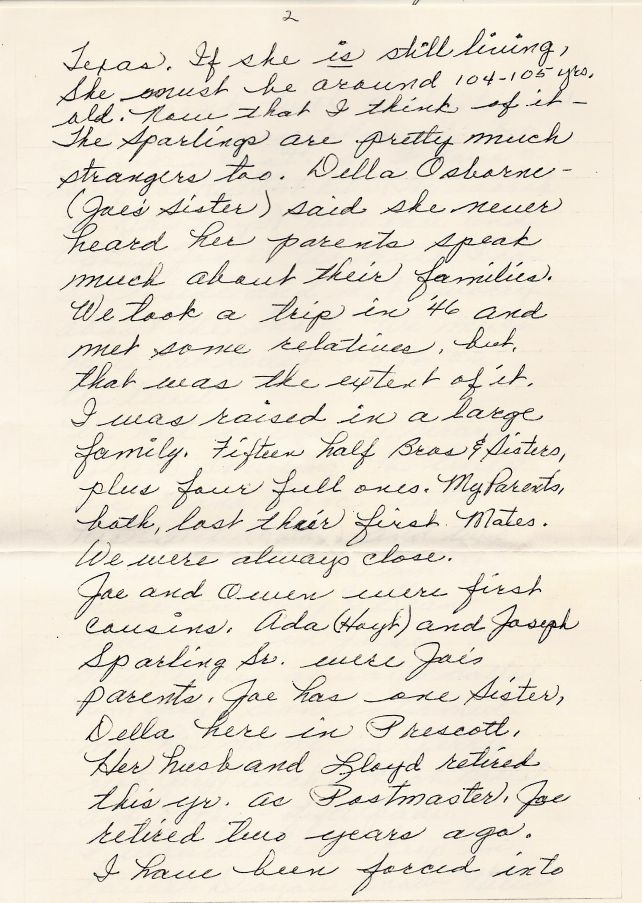 2
Texas. If she is still living,
she must be around 104-105 yrs.
old. Now that I think of it -
The Sparlings are pretty much
strangers too. Della Osborne -
(Joe's sister) said she never
heard her parents speak
much about their families.
We took a trip in '46 and
met some relatives, but,
that was the extent of it.
I was raised in a large
family. Fifteen half Bros & Sisters,
plus four full ones. My Parents,
both, lost their first Mates.
We were always close.
Joe and Owen were first
cousins. Ada (Hoyt) and Joseph
Sparling Sr. were Joe's
parents. Joe has one Sister,
Della here in Prescott.
Her husband Lloyd retired
this yr. as Postmaster. Joe
retired two years ago.
I have been forced into